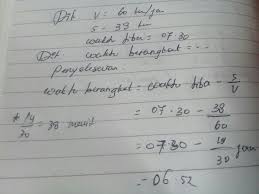 Dik V = 60 km/jam
S = 38 km
waktu tiba = 07.30
Det. waktu berangkat = ...
Penyelesaian
waktu berangkat = waktu tiba - S/V
= 07.30 - 38/60
* 19/30 = 38 menit
= 07.30 - 19/30 jam
= 06.52